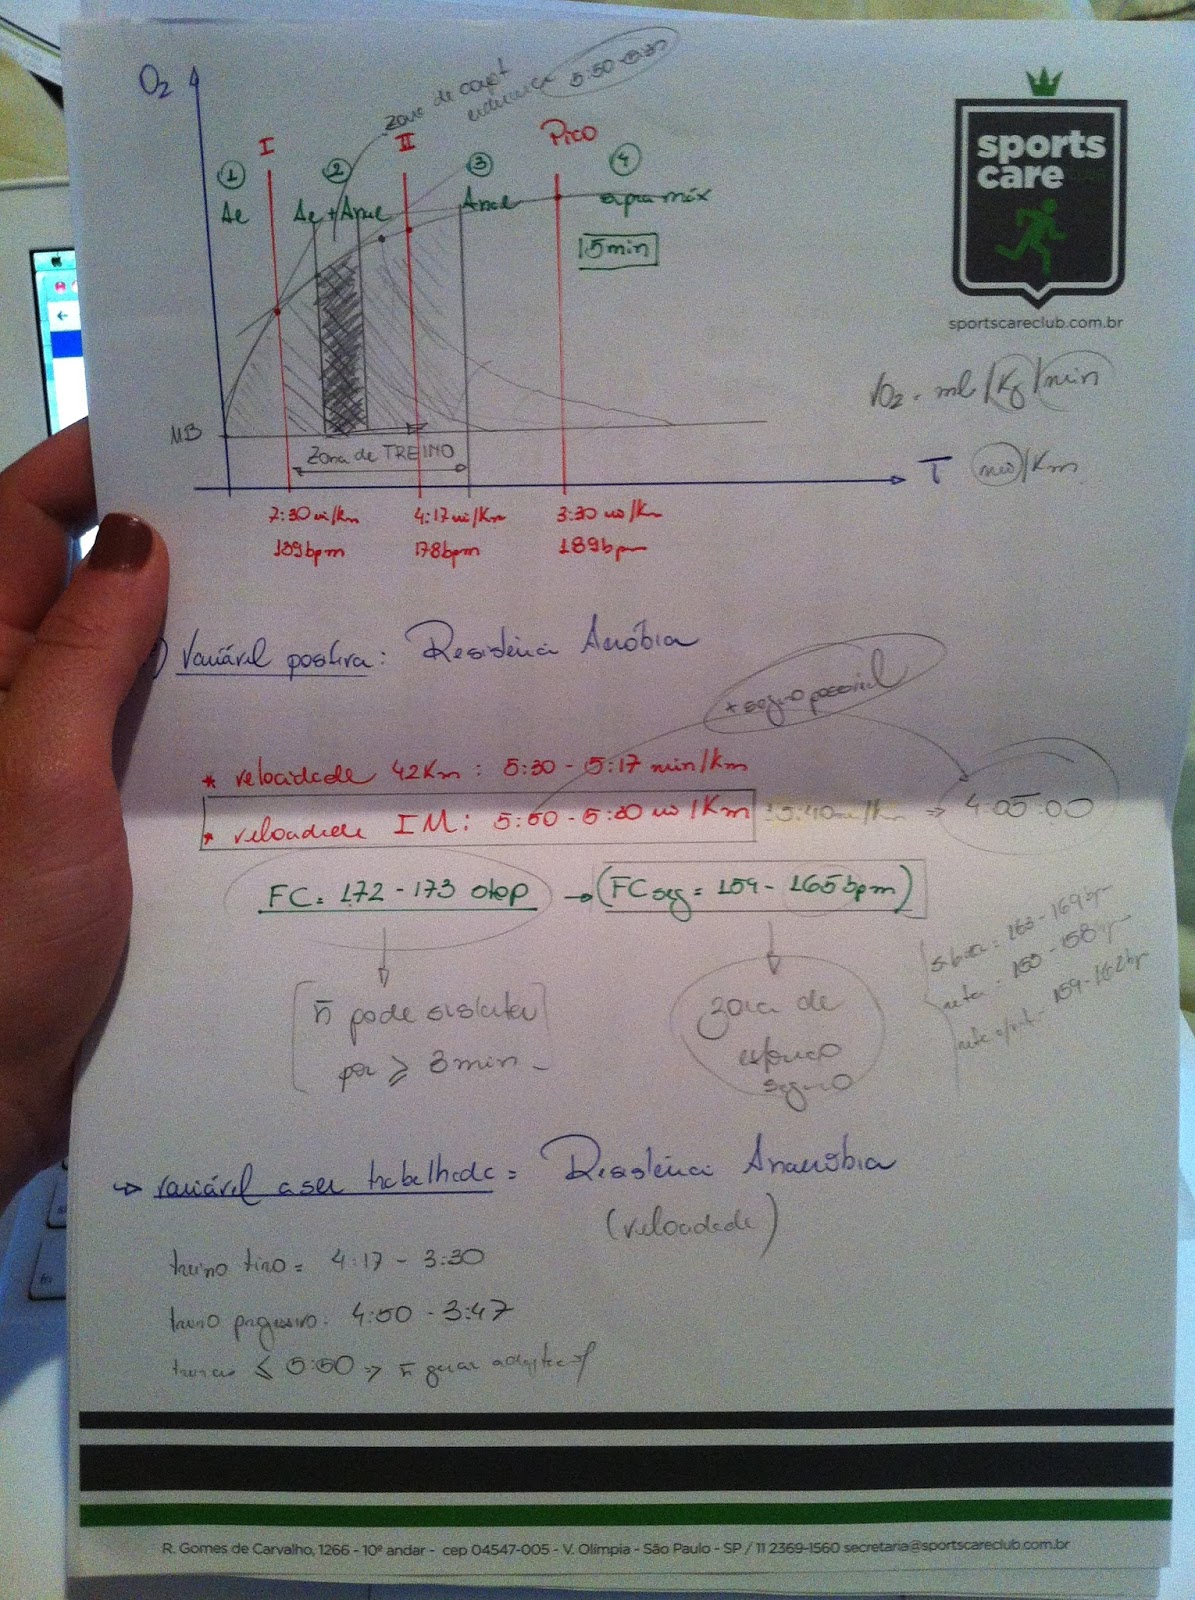 O₂
zona de compt
5:50-5:30
I
II
Pico
① ② ③ ④
Ae
Ae + Anae
Anae
supra máx
15min
sports
care
sportscareclub.com.br
VO₂ = ml/Kg/min
MB
Zona de TREINO
T min/Km
7:30 mi/Km
4:17 mi/Km
3:30 mi/Km
139bpm
178bpm
189bpm
Variável positiva: Resistência Aeróbia
+ seguro possível
* velocidade 42Km: 5:30 - 5:17 min/Km
* velocidade IM: 5:50 - 5:30 mi/Km
5:40mi/Km ⇒ 4:05:00
FC = 172 - 173 → (FC seg = 159 - 165bpm)
subida = 163 - 169bpm
reta = 155 - 158bp
159 - 162bpm
ñ pode sustentar
por ≥ 3min
zona de
esforço
seguro
↪ variável a ser trabalhada = Resistência Anaeróbia
(velocidade)
treino tiro = 4:17 - 3:30
treino progressivo: 4:50 - 3:47
treinos ≤ 5:50 ⇒ ñ gerar
R. Gomes de Carvalho, 1266 - 10º andar - cep 04547-005 - V. Olímpia - São Paulo - SP / 11 2369-1560 secretaria@sportscareclub.com.br